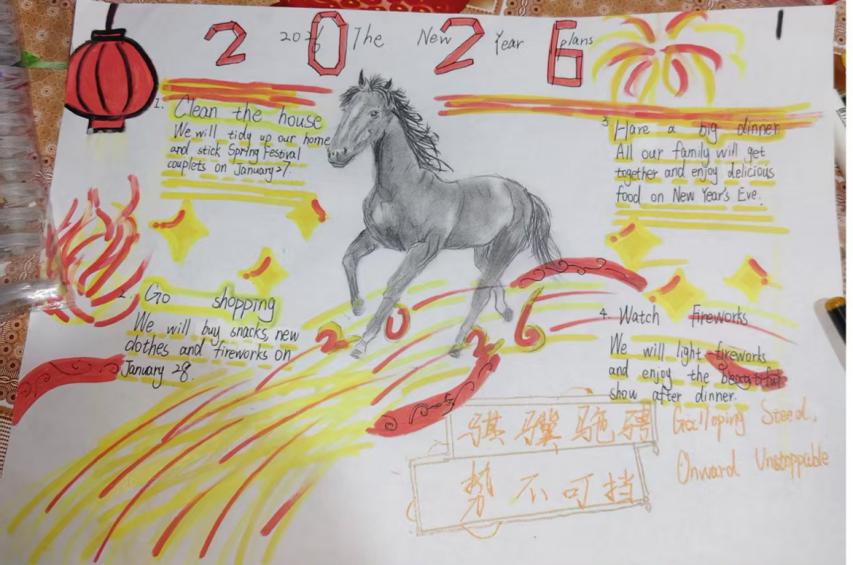 2026
2026 The New Year plans
1. Clean the house
We will tidy up our home
and stick Spring Festival
couplets on January 27.
2. Go shopping
We will buy snacks, new
clothes and fireworks on
January 28.
3 Have a big dinner
All our family will get
together and enjoy delicious
food on New Year's Eve.
4. Watch fireworks
We will light fireworks
and enjoy the beautiful
show after dinner.
2026
骐骥驰骋
势不可挡
Galloping Steed,
Onward Unstoppable